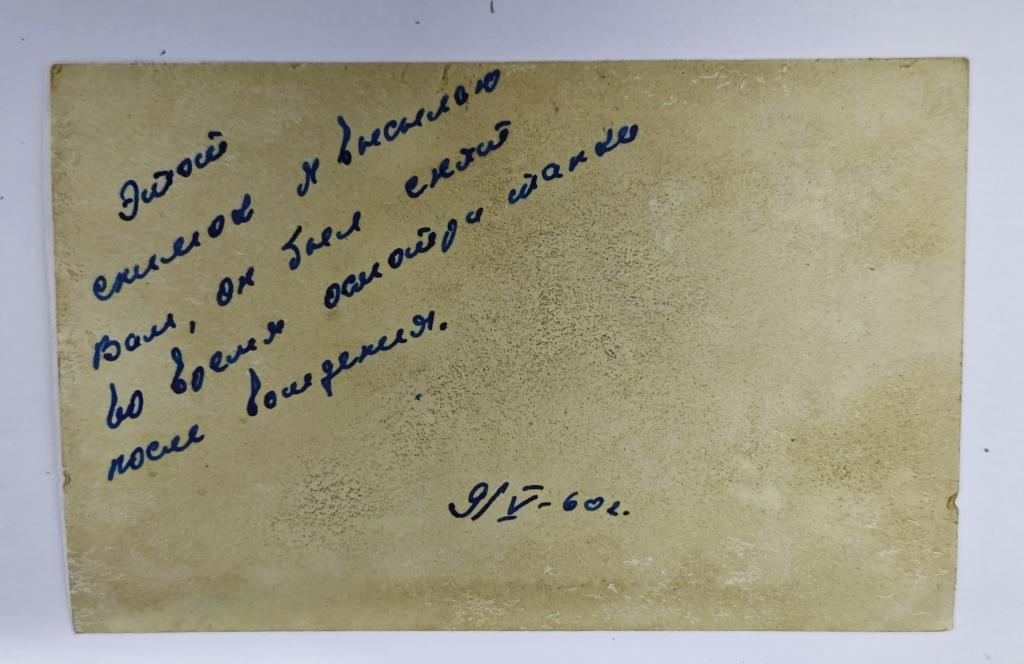 Этот
снимок я высылаю
Вам, он был снят
во время осмотра танка
после вождения.
9/V-60г.